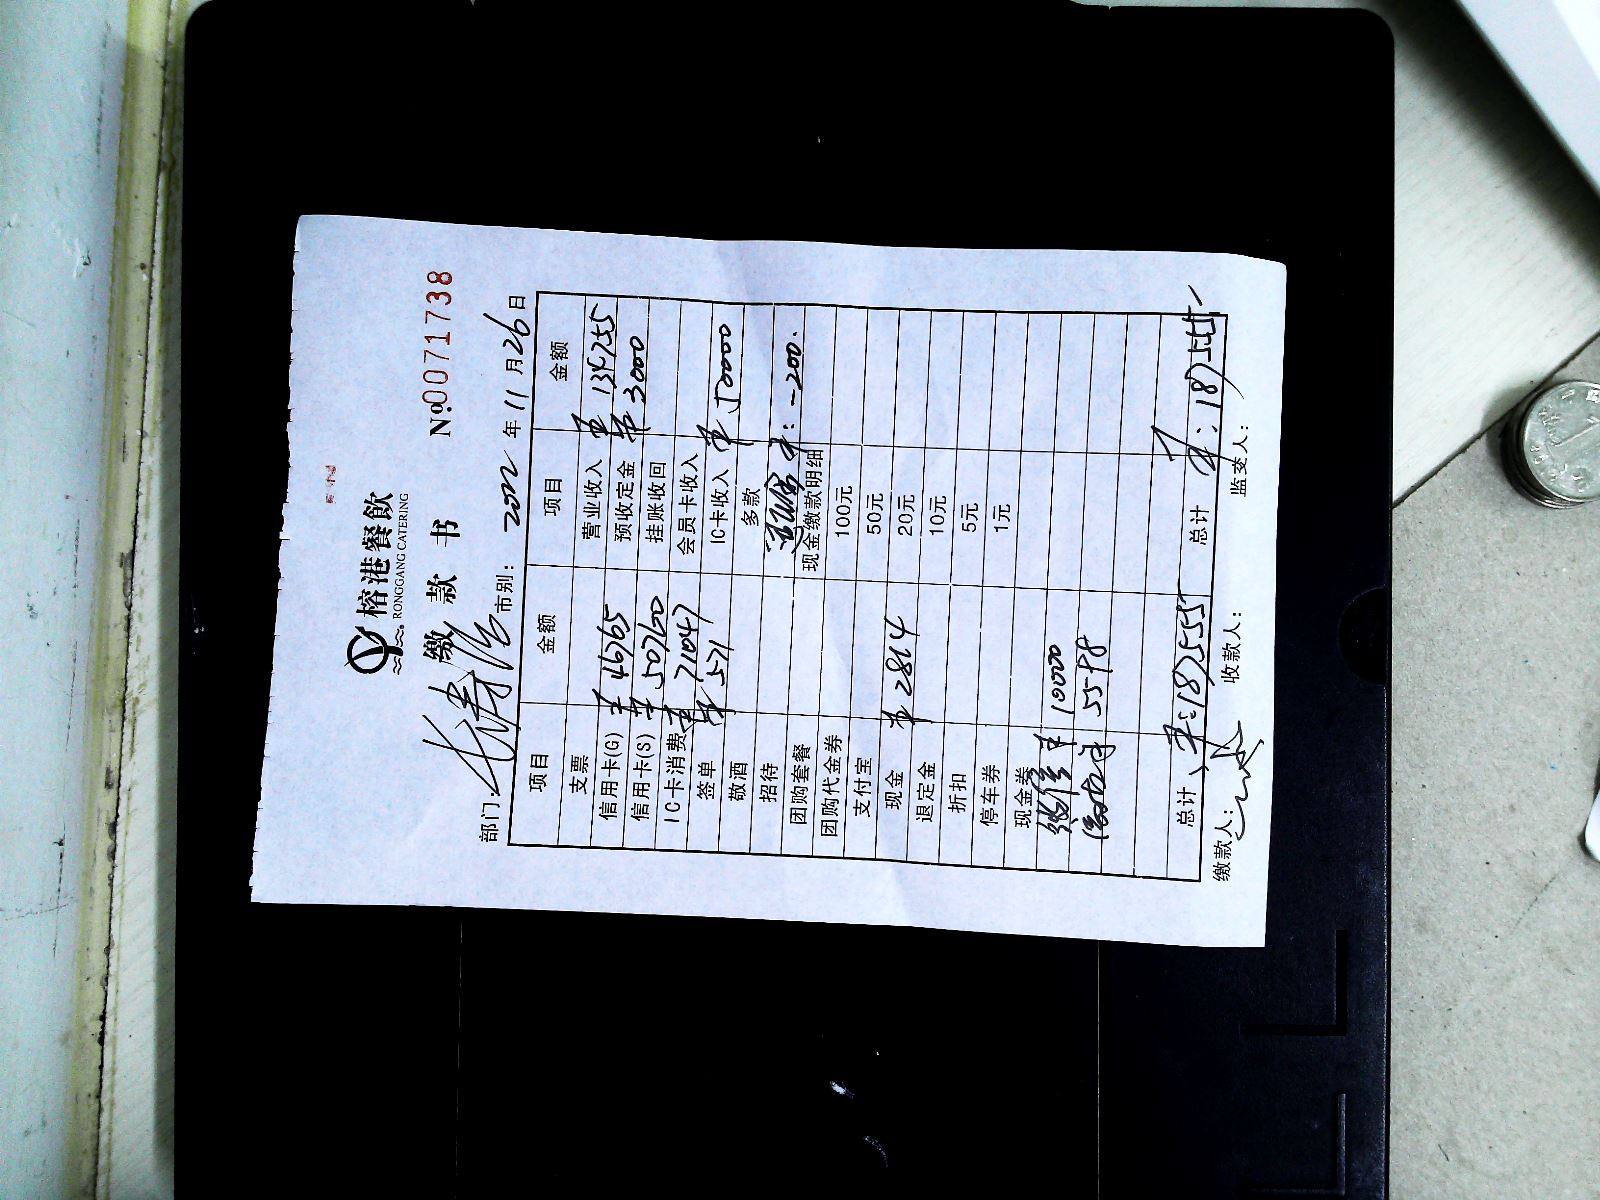 榕港餐飲
RONGGANG CATERING
缴款书
№0071738
部门: 市别: 年 11 月 26 日
项目 金额 项目 金额
支票 营业收入 ¥ 134755
信用卡(G) ¥ 46765 预收定金 ¥ 3000
信用卡(S) ¥ 50760 挂账收回
IC卡消费 ¥ 71047 会员卡收入
签单 ¥ 571 IC卡收入 ¥ 50000
敬酒 多款
招待 ¥: -200.
团购套餐 现金缴款明细
团购代金券 100元
支付宝 50元
现金 ¥ 2814 20元
退定金 10元
折扣 5元
停车券 1元
现金券
¥ 10000
¥ 5598
总计 ¥:187555 总计 ¥:187555
缴款人: 收款人: 监交人: